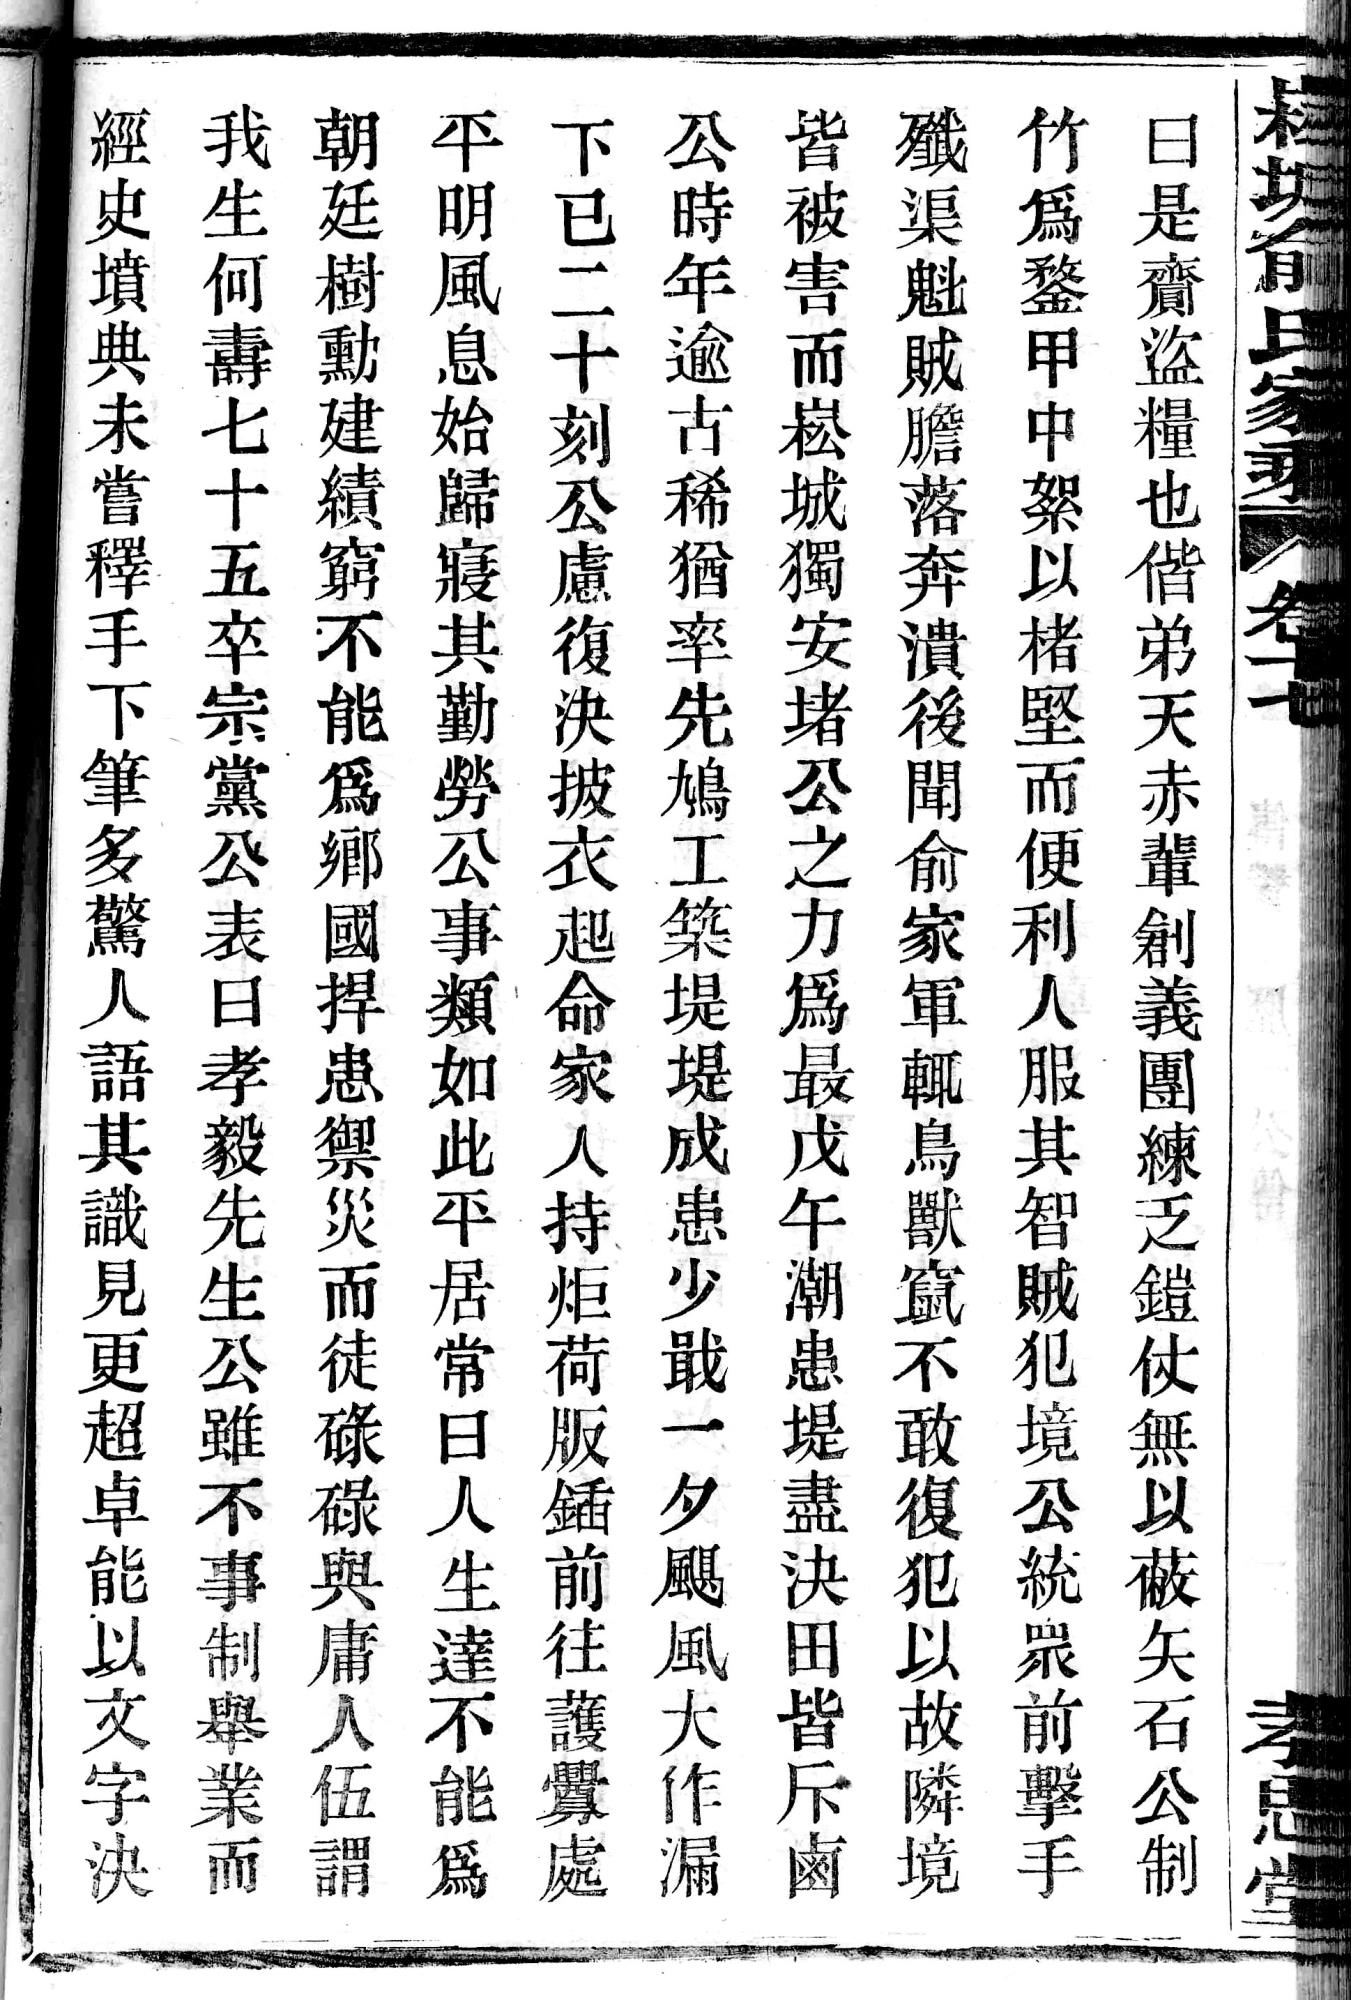 曰是齎盜糧也偕弟天赤輩創義團練乏鎧仗無以蔽矢石公制
竹爲鍪甲中絮以楮堅而便利人服其智賊犯境公統眾前擊手
殲渠魁賊膽落奔潰後聞俞家軍輒鳥獸竄不敢復犯以故隣境
皆被害而崧城獨安堵公之力爲最戊午潮患堤盡決田皆斥鹵
公時年逾古稀猶率先鳩工築堤堤成患少戢一夕颶風大作漏
下已二十刻公慮復決披衣起命家人持炬荷版鍤前往護釁處
平明風息始歸寢其勤勞公事類如此平居常曰人生達不能爲
朝廷樹勳建績窮不能爲鄉國捍患禦災而徒碌碌與庸人伍謂
我生何壽七十五卒宗黨公表曰孝毅先生公雖不事制舉業而
經史墳典未嘗釋手下筆多驚人語其識見更超卓能以文字決
氏家乘 卷十七 孝思堂